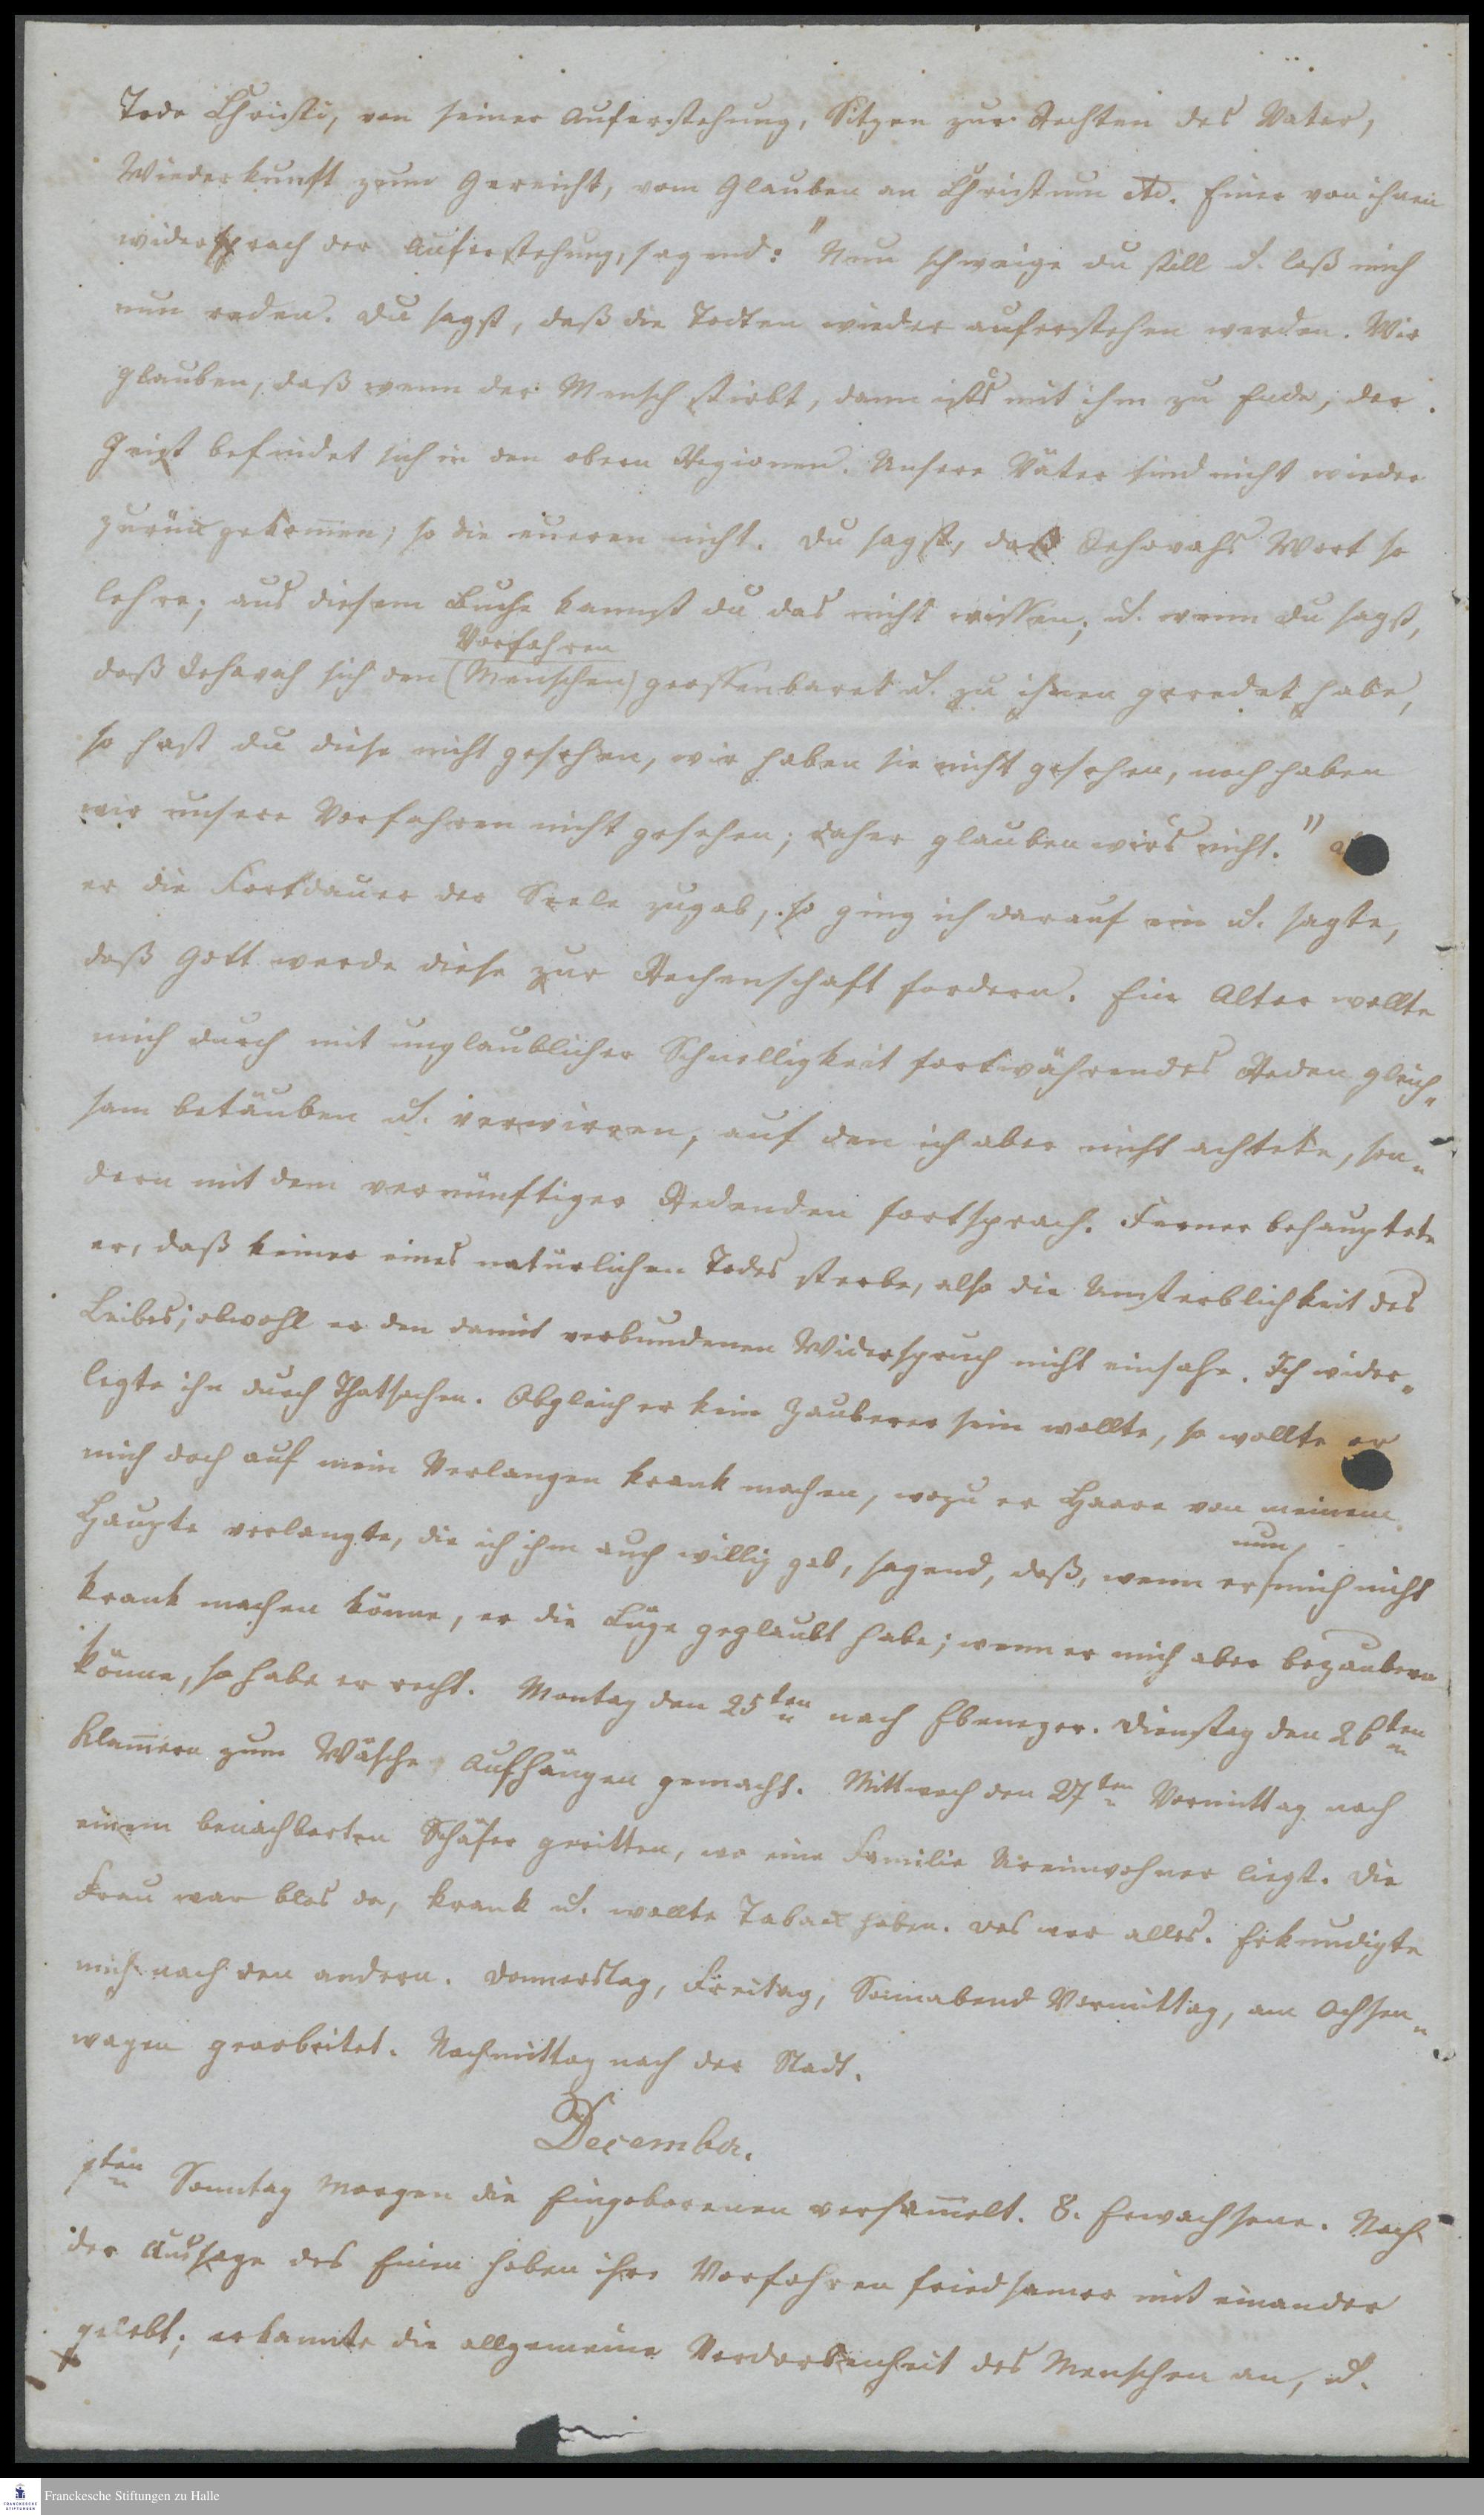 Tode Christi, von seiner Auferstehung, Sitzen zur Rechten des Vater,
Wiederkunft zum Gericht, vom Glauben an Christum etc. Einer von ihnen
widersprach der Auferstehung, sagend: "Nun schweige du still u. laß mich
nun reden. Du sagst, daß die Todten wieder auferstehen werden. Wir
glauben, daß wenn der Mensch stirbt, dann ists mit ihm zu Ende, der
Geist befindet sich in den obern Regionen. Unsere Väter sind nicht wieder
zurückgekom̄en; so die eueren nicht. Du sagst, daß Jehovahs Wort so
lehre; aus diesem Buche kannst du das nicht wissen; u. wenn du sagst,
Vorfahren
daß Jehovah sich den (Menschen) geoffenbaret u. zu ihnen geredet habe,
so hast du diese nicht gesehen, wir haben sie nicht gesehen, noch haben
wir unsere Vorfahren nicht gesehen; daher glauben wirs nicht."
er die Fortdauer der Seele zugab, so ging ich darauf ein u. sagte,
daß Gott werde diese zur Rechenschaft fordern. Ein Alter wollte
mich durch mit unglaublicher Schnelligkeit fortwährendes Reden gleich„
sam betäuben u. verwirren, auf den ich aber nicht achtete, son„
dern mit dem vernünftiger Redenden fortsprach. Ferner behauptete
er, daß keiner eines natürlichen Todes sterbe, also die Unsterblichkeit des
Leibes; obwohl er den damit verbundenen Widerspruch nicht einsahe. Ich wider„
legte ihn durch Thatsachen. Obgleich er kein Zauberer sein wollte, so wollte er
mich doch auf mein Verlangen krank machen, wozu er Haare von meinem
nun
Haupte verlangte, die ich ihm auch willig gab, sagend, daß, wenn er mich nicht
krank machen könne, er die Lüge geglaubt habe; wenn er mich aber bezaubern
könne, so habe er recht. Montag den 25ten nach Ebenezer. Dienstag den 26ten
Klam̄ern zum Wäsche Aufhängen gemacht. Mittwoch den 27ten Vormittag nach
einem benachbarten Schäfer geritten, wo eine Familie Ureinwohner liegt. Die
Frau war blos da, krank u. wollte Taback haben. Das war alles. Erkundigte
mich nach den andern. Donnerstag, Freitag, Sonnabend Vormittag, am Ochsen„
wagen gearbeitet. Nachmittag nach der Stadt.
December.
1ten Sonntag Morgen die Eingeborenen versam̄elt. 8. Erwachsene. Nach
der Aussage des Einen haben ihre Vorfahren friedsamer mit einander
gelebt; erkannte die allgemeine Verdorbenheit des Menschen an, u.
Franckesche Stiftungen zu Halle